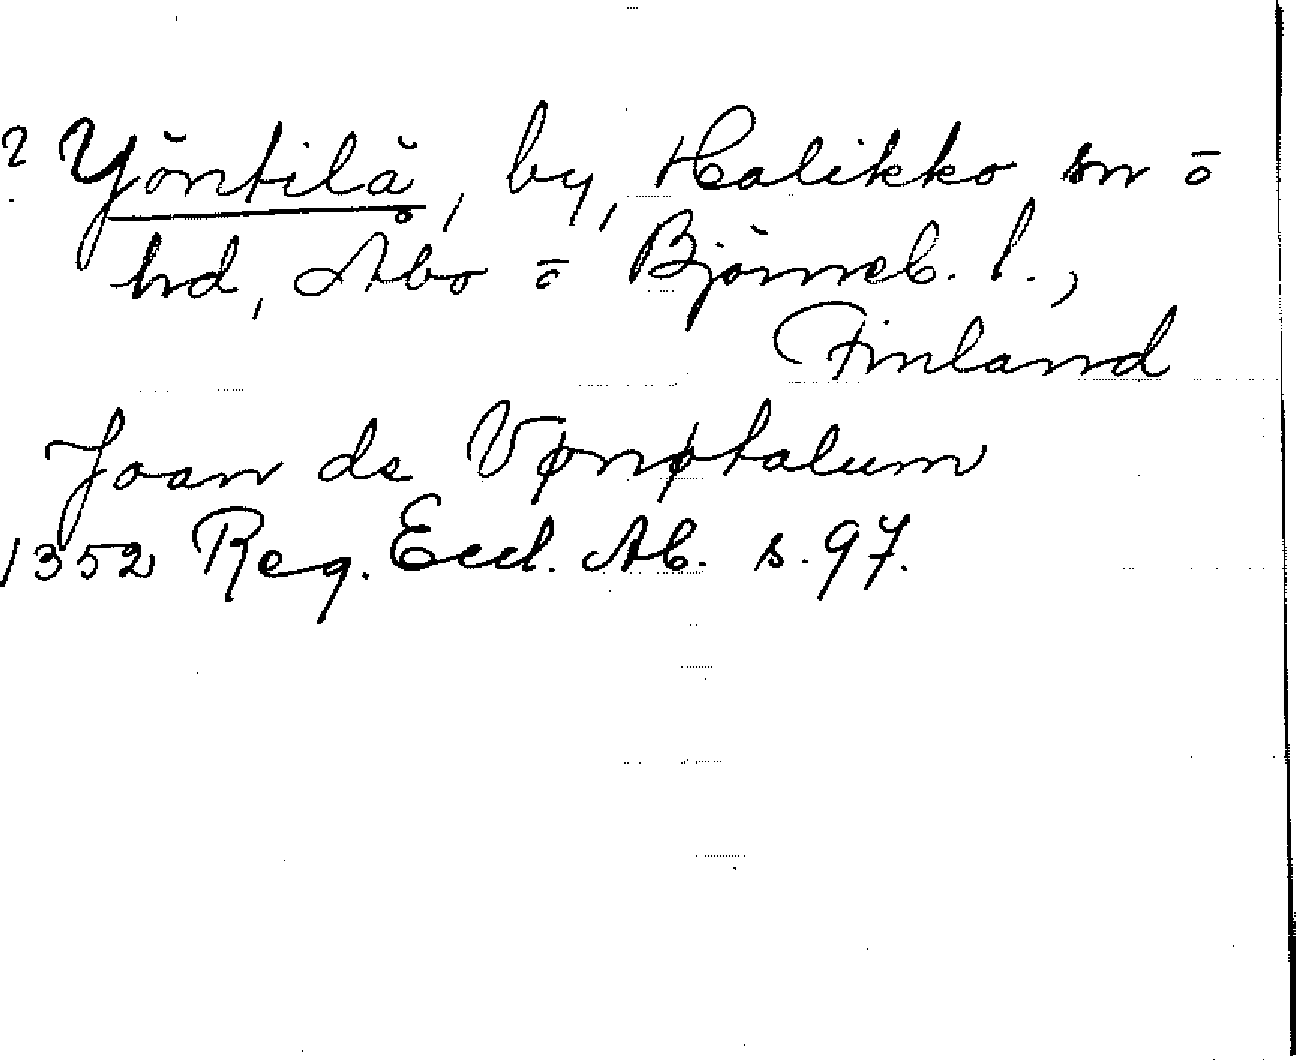 ? Yöntilä, by, Halikko sn o̅
hd, Åbo o̅ Björneb. l.,
Finland
Joan de Vønøtalum
1352 Reg. Eccl. Ab. s. 97.